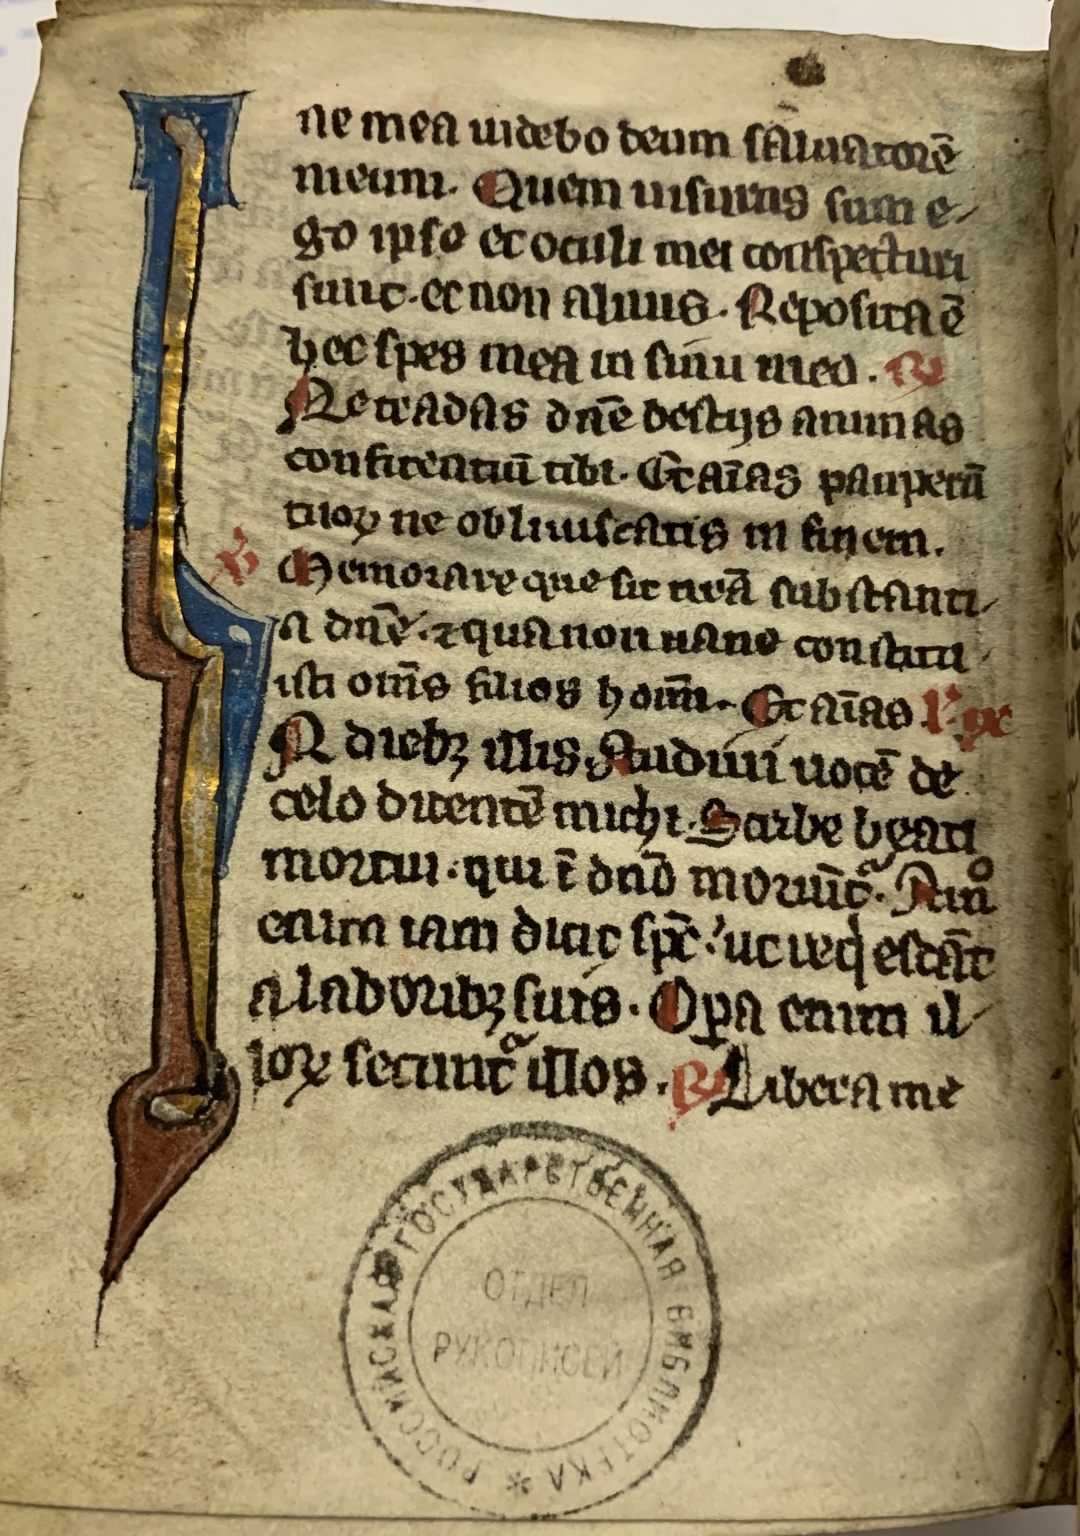 ne mea uidebo deum saluatorē
meum. Quem uisurus sum e-
go ipse et oculi mei conspecturi
sunt. et non alius. Reposita ē
hec spes mea in sinu meo. R
Ne tradas dn̄e bestijs animas
confitentiū tibi. Et aīas pauperū
tuoꝝ ne obliuiscaris in finem.
V Memorare que sit mea substanti-
a dn̄e. ⁊ qua non uane constitu
isti om̄s filios homī. Et aīas l' ix
IN diebꝫ illis. Audiui uocē de
celo dicentē michi. Scribe beati
mortui. qui ī dn̄o moriūtᵃ. Amᵒ
enim iam dicit sp̄c. ut reqͥescāt
a laboribꝫ suis. Oꝑa enim il-
loꝝ secuntᵃ illos. R Libera me
РОССИЙСКАЯ ГОСУДАРСТВЕННАЯ БИБЛИОТЕКА *
ОТДЕЛ
РУКОПИСЕЙ